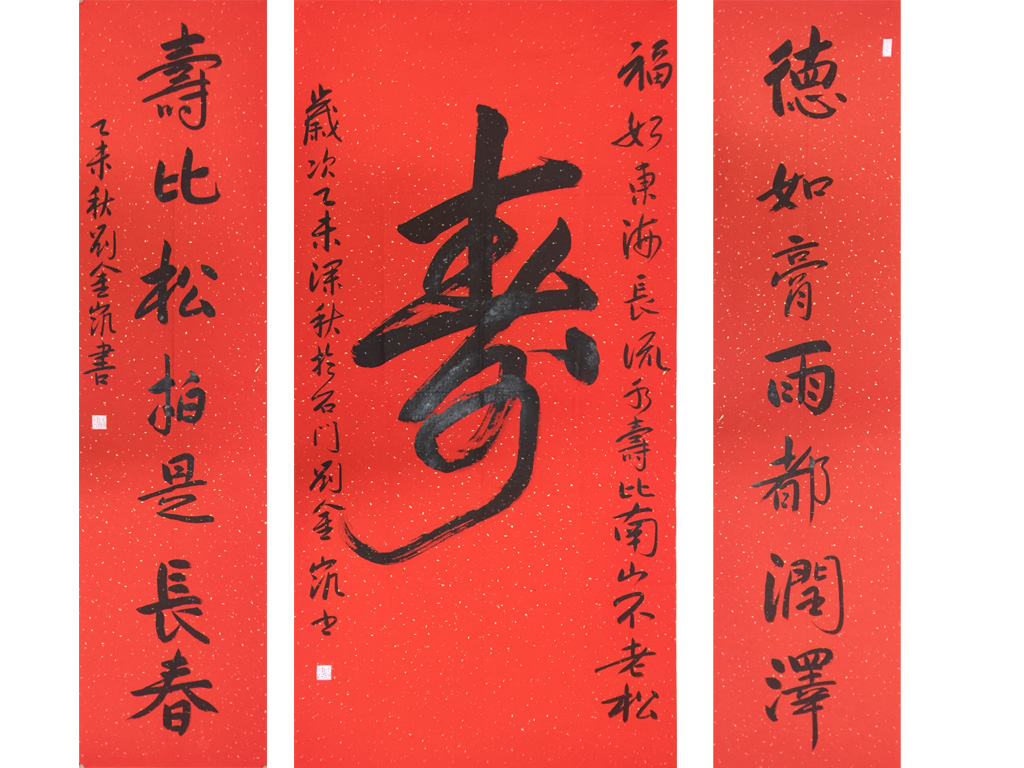 德如膏雨都潤澤
福如東海長流水壽比南山不老松
寿
歲次乙未深秋於石门劉金书
壽比松柏是長春
乙未秋劉金書